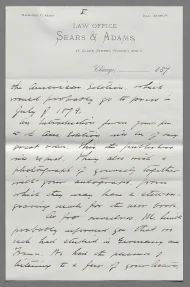 LAW OFFICE
SEARS & ADAMS,
Chicago, 187
the American Edition, which
would probably go to press in
July of 1879.
an Introduction from your pen
to the Am Edition will be of very
great value. This the publishers
will request. They also wish a
photograph of yourself together
with your autograph from
which they may have a steel en-
graving made for the new book.
As for ourselves Mr. Hunt
probably informed you that we
each had studied in Germany and
France. We had the pleasure of
listening to a few of your lectures,